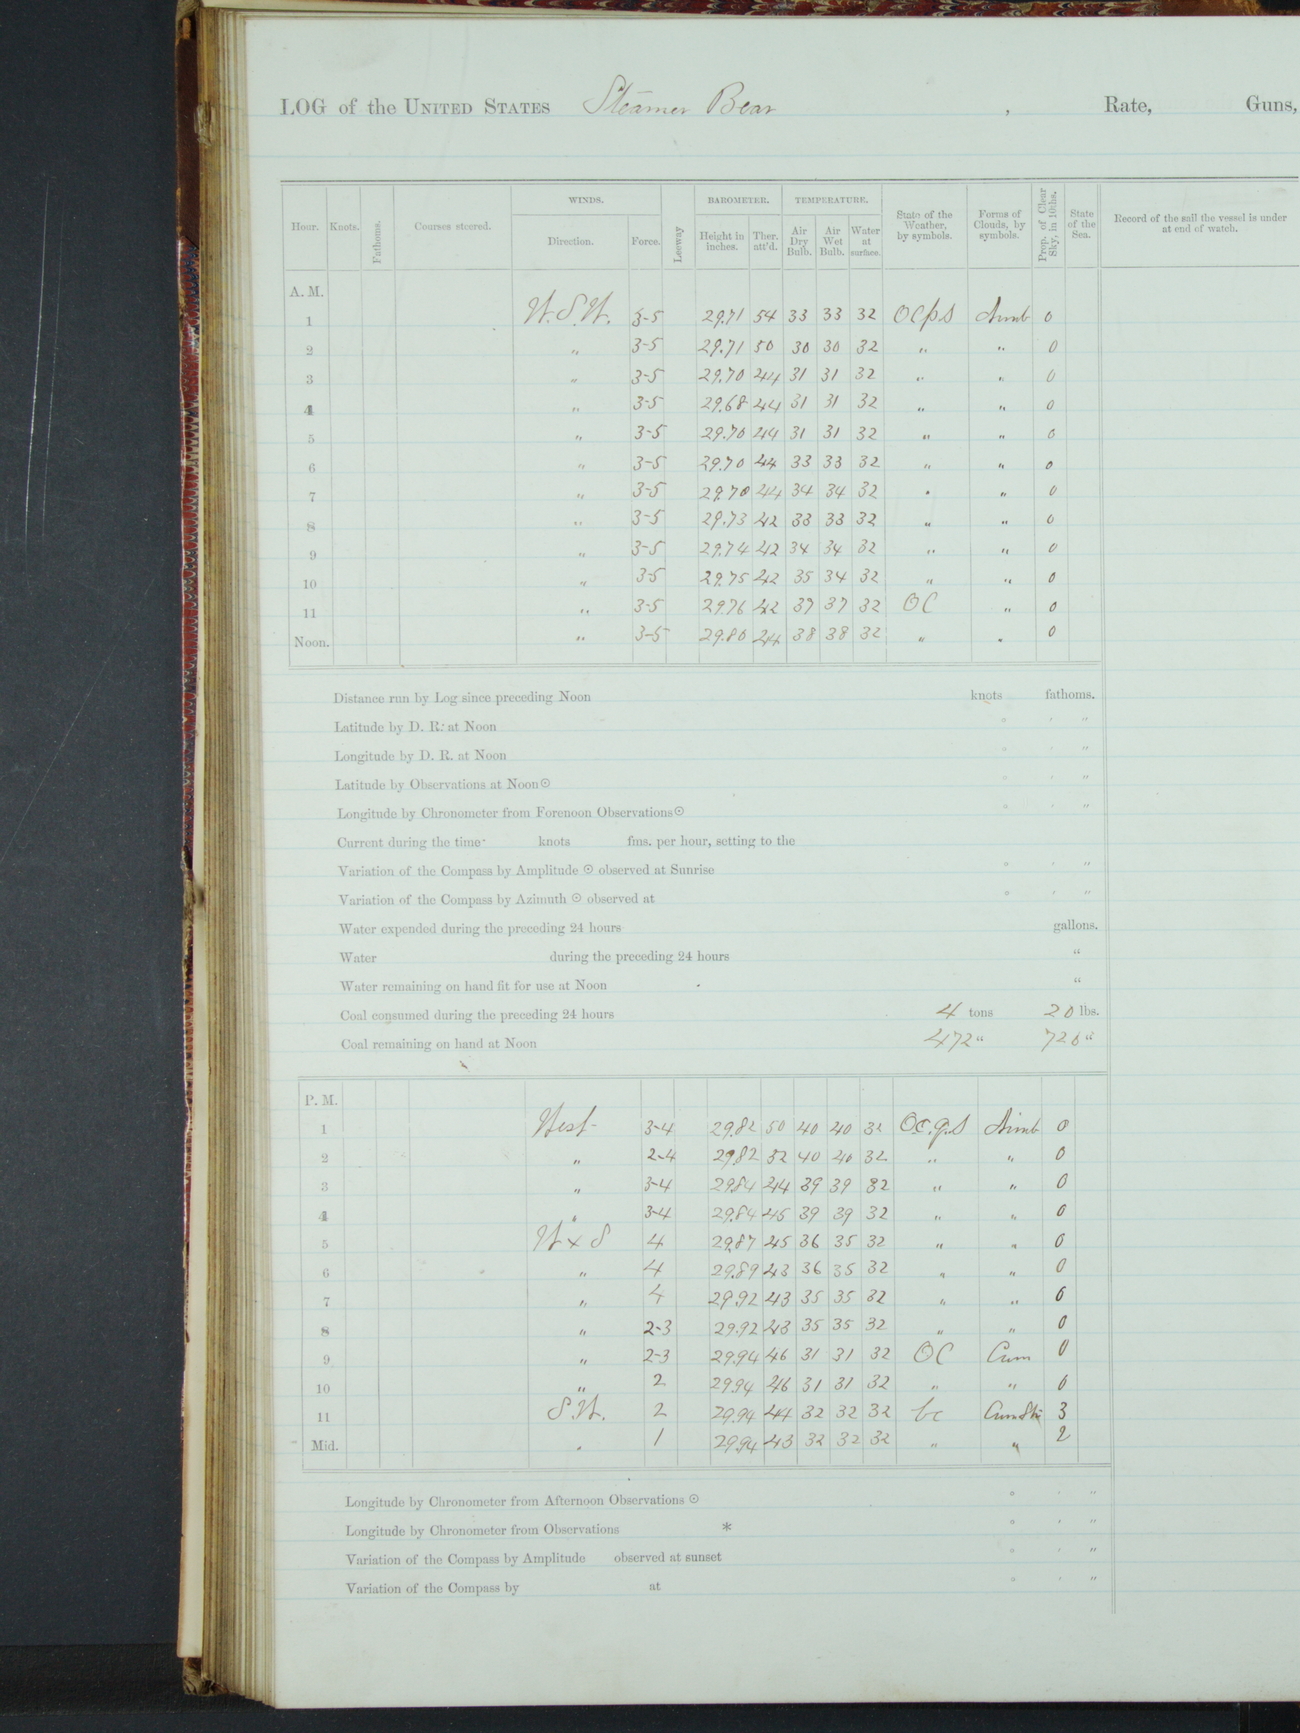 LOG of the UNITED STATES Steamer Bear , Rate, Guns,
WINDS. BAROMETER. TEMPERATURE.
Hour. Knots. Fathoms. Courses steered. Direction. Force. Leeway Height in inches. Ther. att'd. Air Dry Bulb. Air Wet Bulb. Water at surface. State of the Weather, by symbols. Forms of Clouds, by symbols. Prop. of Clear Sky, in 10ths. State of the Sea. Record of the sail the vessel is under at end of watch.
A. M.
1 W.S.W. 3-5 29.71 54 33 33 32 ocps Nimb 0
2 " 3-5 29.71 50 30 30 32 " " 0
3 " 3-5 29.70 44 31 31 32 " " 0
4 " 3-5 29.68 44 31 31 32 " " 0
5 " 3-5 29.70 44 31 31 32 " " 0
6 " 3-5 29.70 44 33 33 32 " " 0
7 " 3-5 29.70 44 34 34 32 " " 0
8 " 3-5 29.73 42 33 33 32 " " 0
9 " 3-5 29.74 42 34 34 32 " " 0
10 " 3-5 29.75 42 35 34 32 " " 0
11 " 3-5 29.76 42 37 37 32 OC " 0
Noon. " 3-5 29.80 44 38 38 32 " " 0
Distance run by Log since preceding Noon knots fathoms.
Latitude by D. R. at Noon ° ' "
Longitude by D. R. at Noon ° ' "
Latitude by Observations at Noon ☉ ° ' "
Longitude by Chronometer from Forenoon Observations ☉ ° ' "
Current during the time knots fms. per hour, setting to the
Variation of the Compass by Amplitude ☉ observed at Sunrise ° ' "
Variation of the Compass by Azimuth ☉ observed at ° ' "
Water expended during the preceding 24 hours gallons.
Water during the preceding 24 hours "
Water remaining on hand fit for use at Noon "
Coal consumed during the preceding 24 hours 4 tons 20 lbs.
Coal remaining on hand at Noon 472 " 720 "
P. M.
1 West 3-4 29.82 50 40 40 32 Oc.q.s Nimb 0
2 " 2-4 29.82 52 40 40 32 " " 0
3 " 3-4 29.84 44 39 39 32 " " 0
4 " 3-4 29.84 45 39 39 32 " " 0
5 W x S 4 29.87 45 36 35 32 " " 0
6 " 4 29.89 43 36 35 32 " " 0
7 " 4 29.92 43 35 35 32 " " 0
8 " 2-3 29.92 43 35 35 32 " " 0
9 " 2-3 29.94 46 31 31 32 OC Cum 0
10 " 2 29.94 46 31 31 32 " " 0
11 S.W. 2 29.94 44 32 32 32 bc CumStr 3
Mid. " 1 29.94 43 32 32 32 " " 2
Longitude by Chronometer from Afternoon Observations ☉ ° ' "
Longitude by Chronometer from Observations * ° ' "
Variation of the Compass by Amplitude observed at sunset ° ' "
Variation of the Compass by at ° ' "